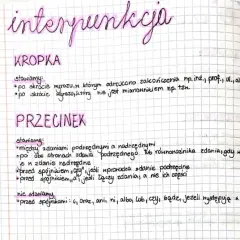 interpunkcja
KROPKA
stawiamy:
• po skrócie wyrazu, w którym odrzucono zakończenia np. ind., prof., ul., al.
• po skrócie wyrazu, który nie jest mianownikiem np. tzn.
PRZECINEK
stawiamy:
• między zdaniami podrzędnymi a nadrzędnymi
• po obu stronach zdania podrzędnego lub równoważnika zdania, gdy
w zdanie nadrzędne
• przed spójnikiem, gdy wprowadza zdanie podrzędne
• przed spójnikiem, a jeśli łączy zdania, a nie ich części
nie stawiamy
• przed spójnikami: i, oraz, ani, ni, albo, lub, czy, bądź, jeżeli występuje